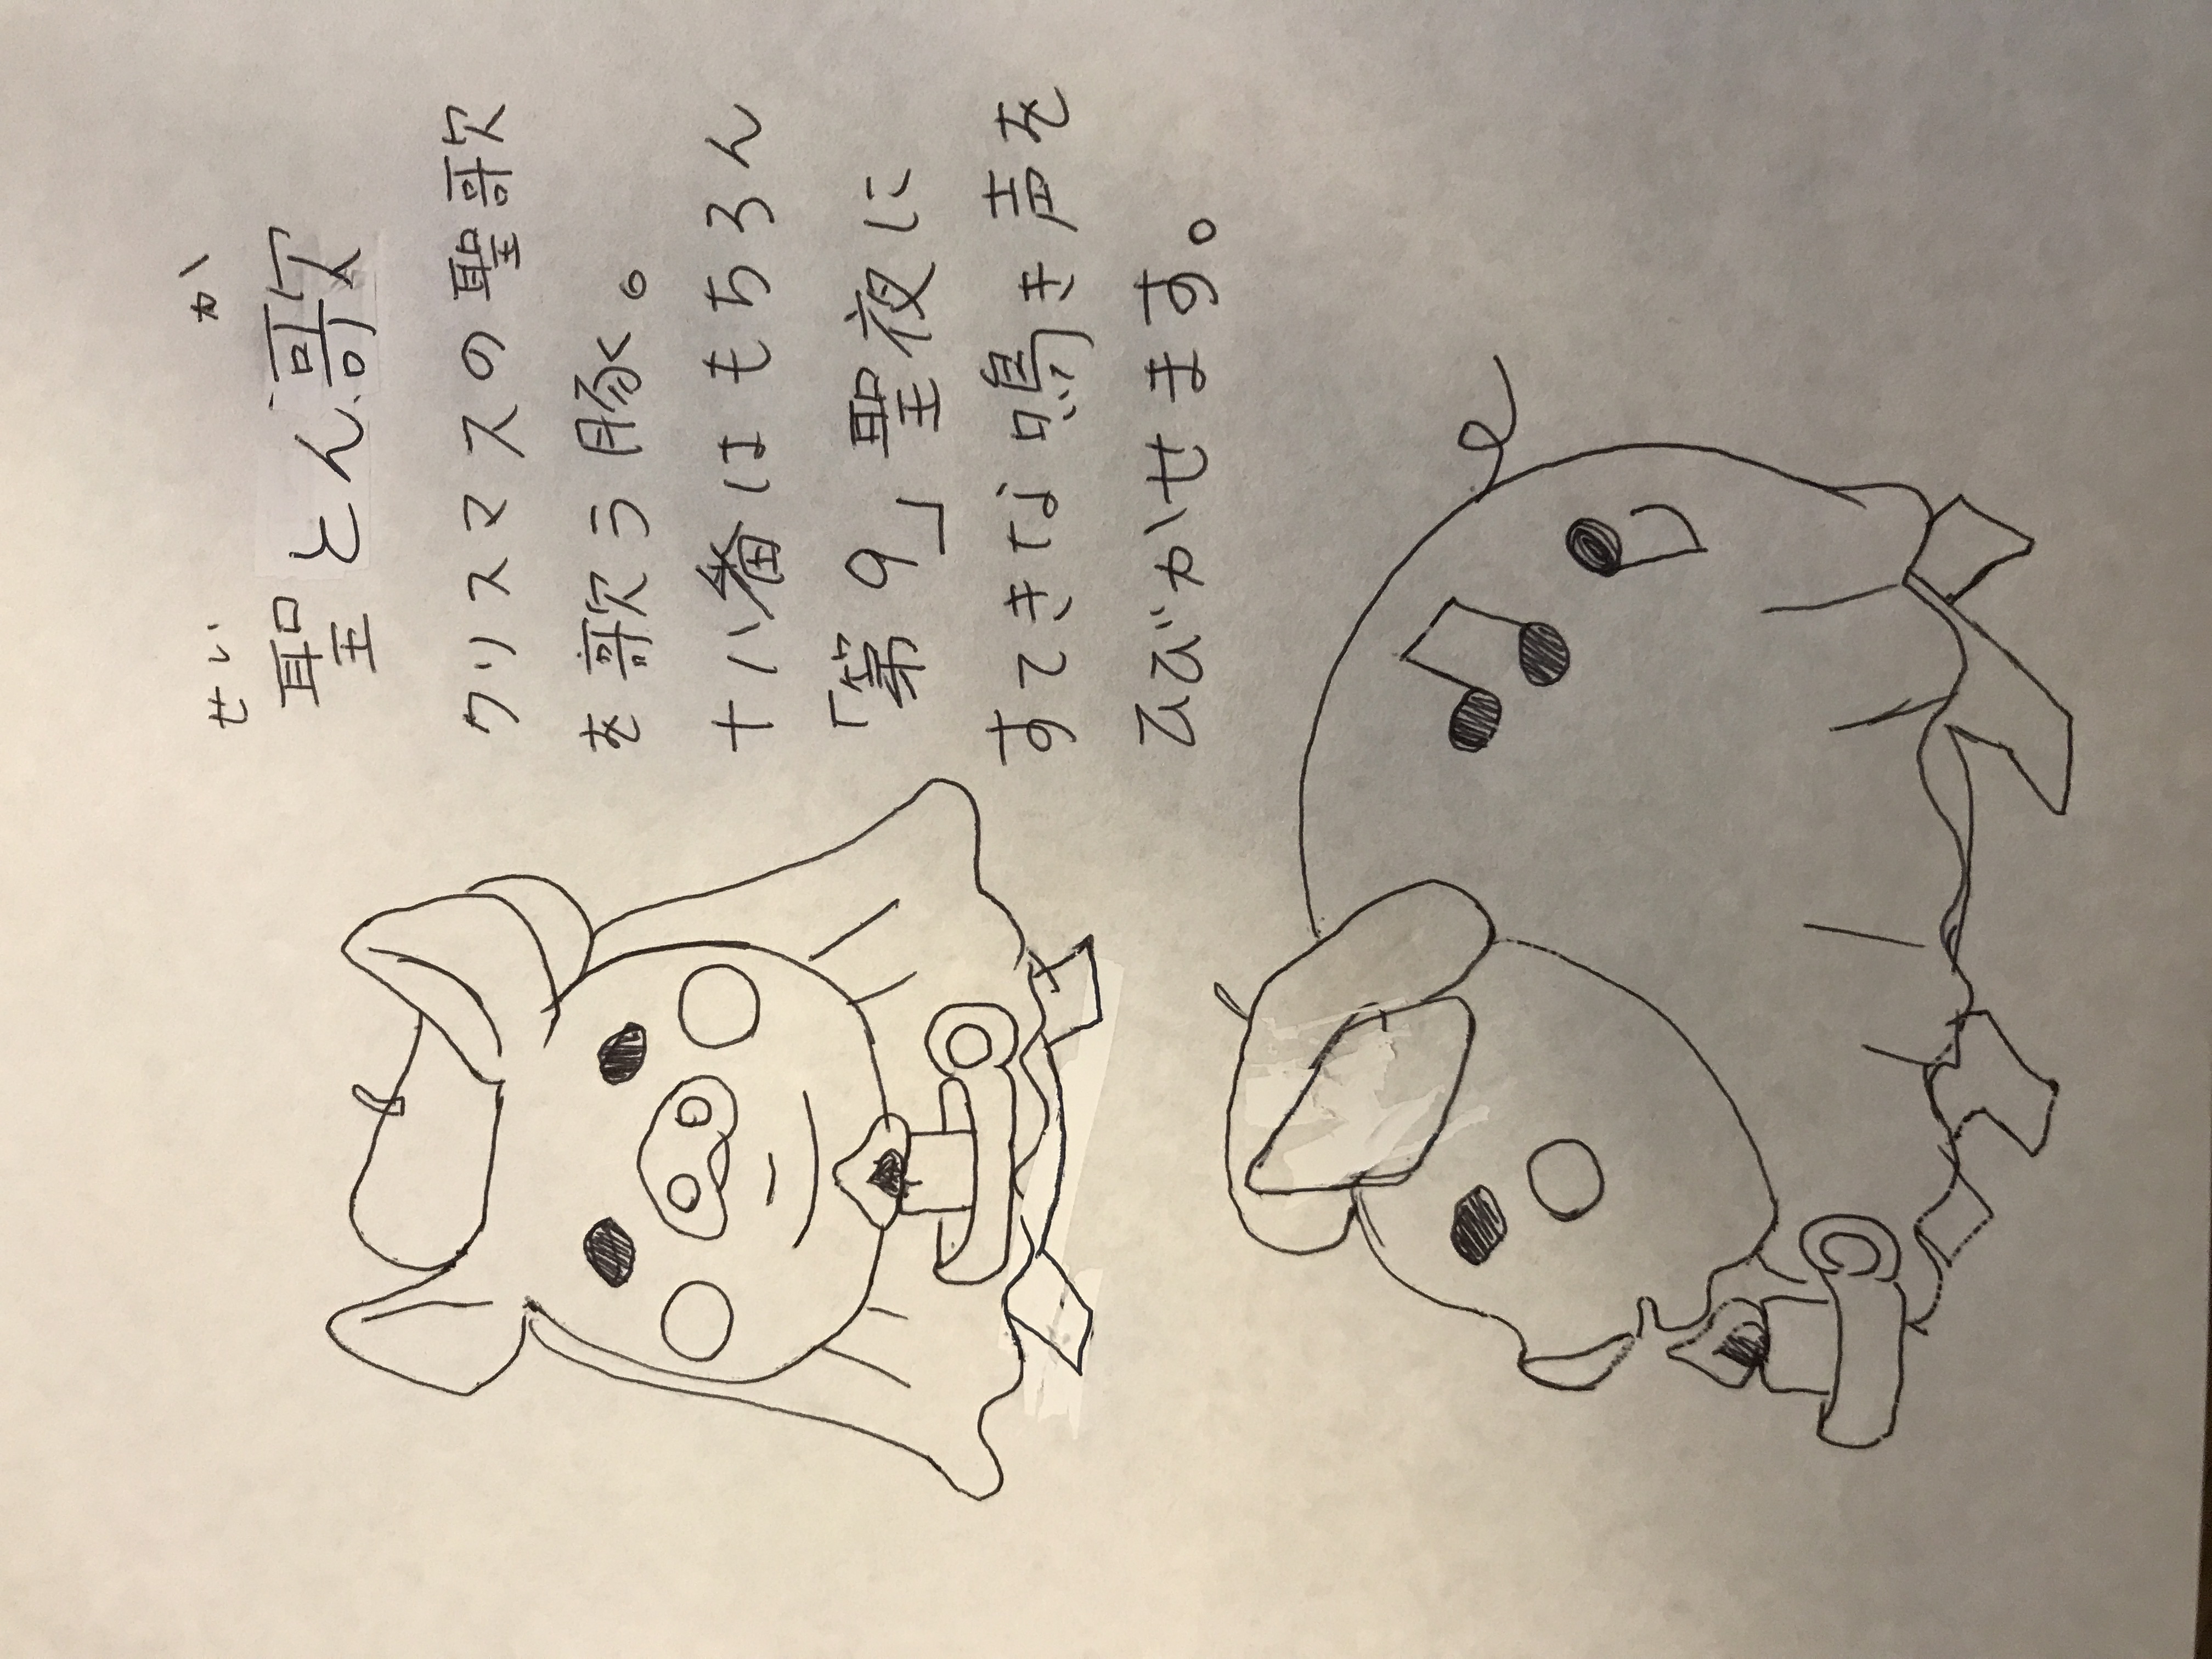 せい か
聖とん歌
クリスマスの聖歌
を歌う豚。
十八番はもちろん
「第9」聖夜に
すてきな鳴き声を
ひびかせます。